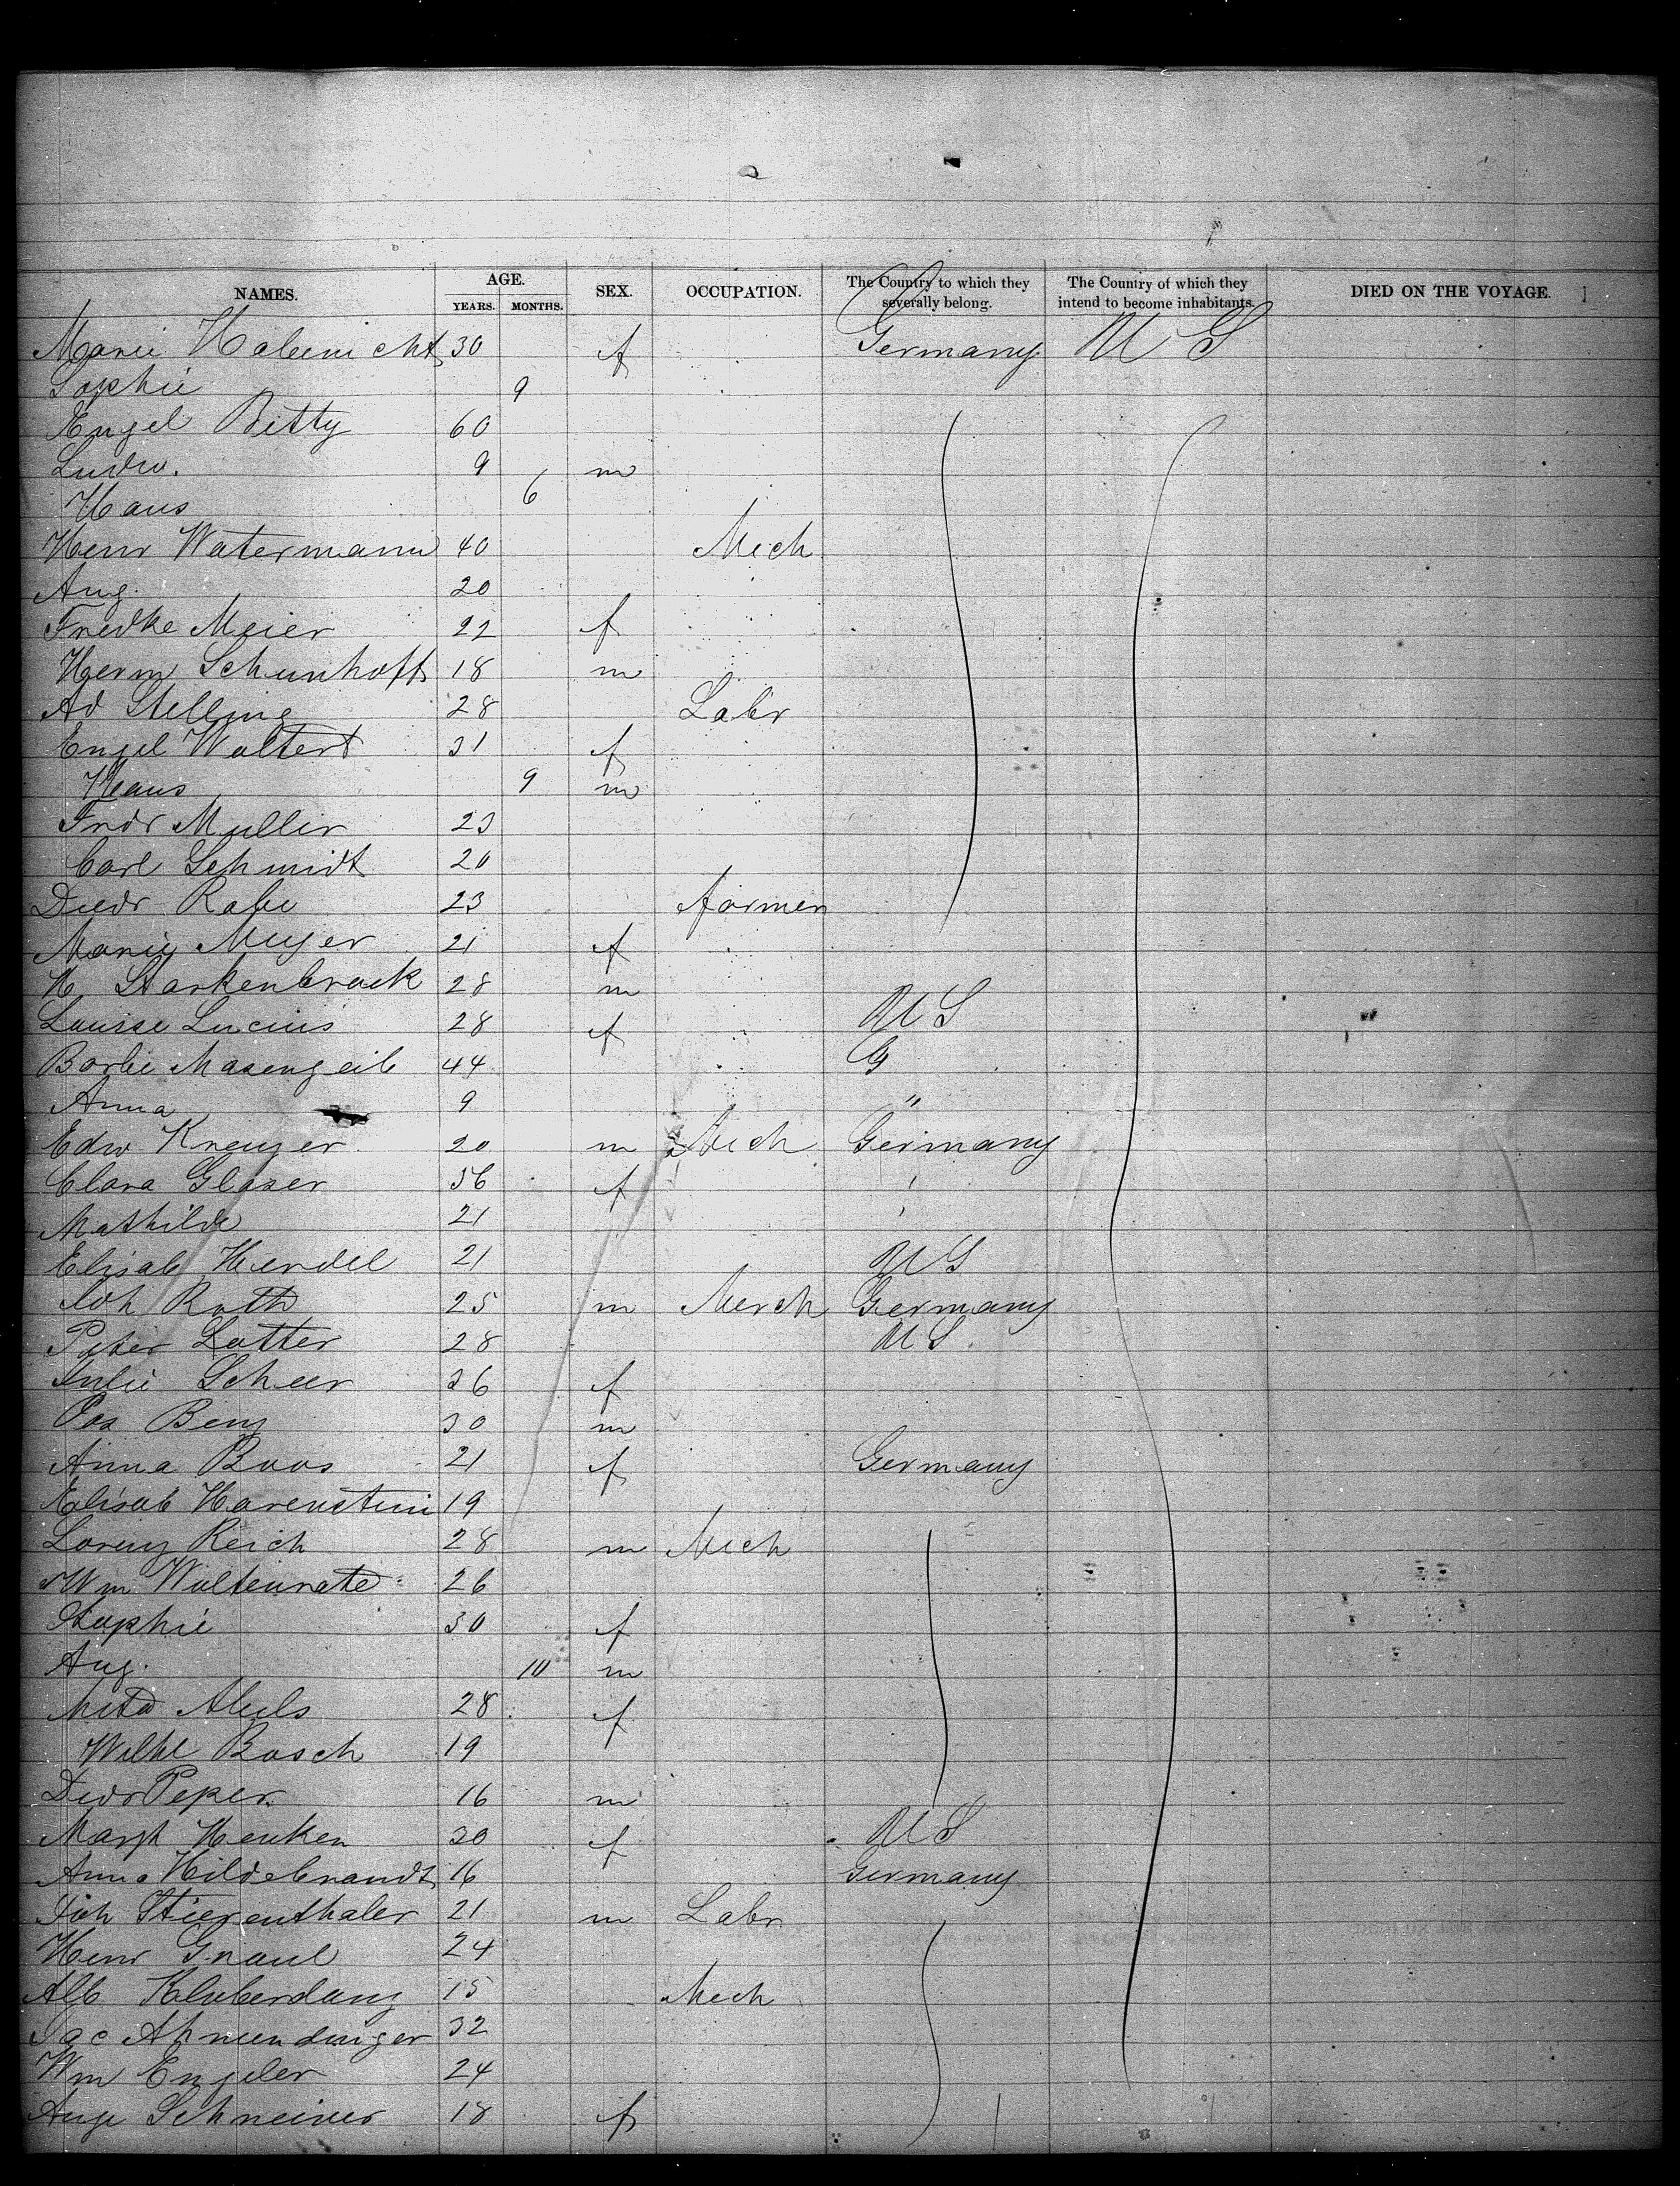 NAMES. AGE. YEARS. MONTHS. SEX. OCCUPATION. The Country to which they severally belong. The Country of which they intend to become inhabitants. DIED ON THE VOYAGE.
Marie 30 f Germany U S
Sophie 9
Engel Bitty 60
Ludw. 9 m
Hans 6
Henr Watermann 40 Mech
Aug. 20
Fredke Meier 22 f
Herm Schunhoff 18 m
Ad Stelling 28 Labr
Engel Woltert 31 f
Hans 9 m
Fredr Muller 23
Carl Schmidt 20
Diedr Rabe 23 farmer
Marie Meyer 21 f
H Starkenbrock 28 m
Louise Lucius 28 f U S
Barbe Masengeib 44 G
Anna 9 "
Edw Kreuzer 20 m Mech Germany
Clara Glaser 56 f '
Mathilde 21 '
Elisab Hendel 21 U S
Joh Roth 25 m Merch Germany
Peter Latter 28 U S
Julie Scheer 36 f
Benz 30 m
Anna Boos 21 f Germany
Elisab Harenstein 19
Lorenz Reich 28 m Mech
Wm 26
Sophie 30 f
Aug. 10 m
Meta 28 f
Wilhl Bosch 19
Diedr Peper 16 m
Margt Henken 30 f U S
Anna Hildebrandt 16 Germany
Joh Stierenthaler 21 m Labr
Henr Graul 24
Alb Kluberdanz 15 Mech
Jac 32
Wm Engeler 24
Auge Schneider 18 f